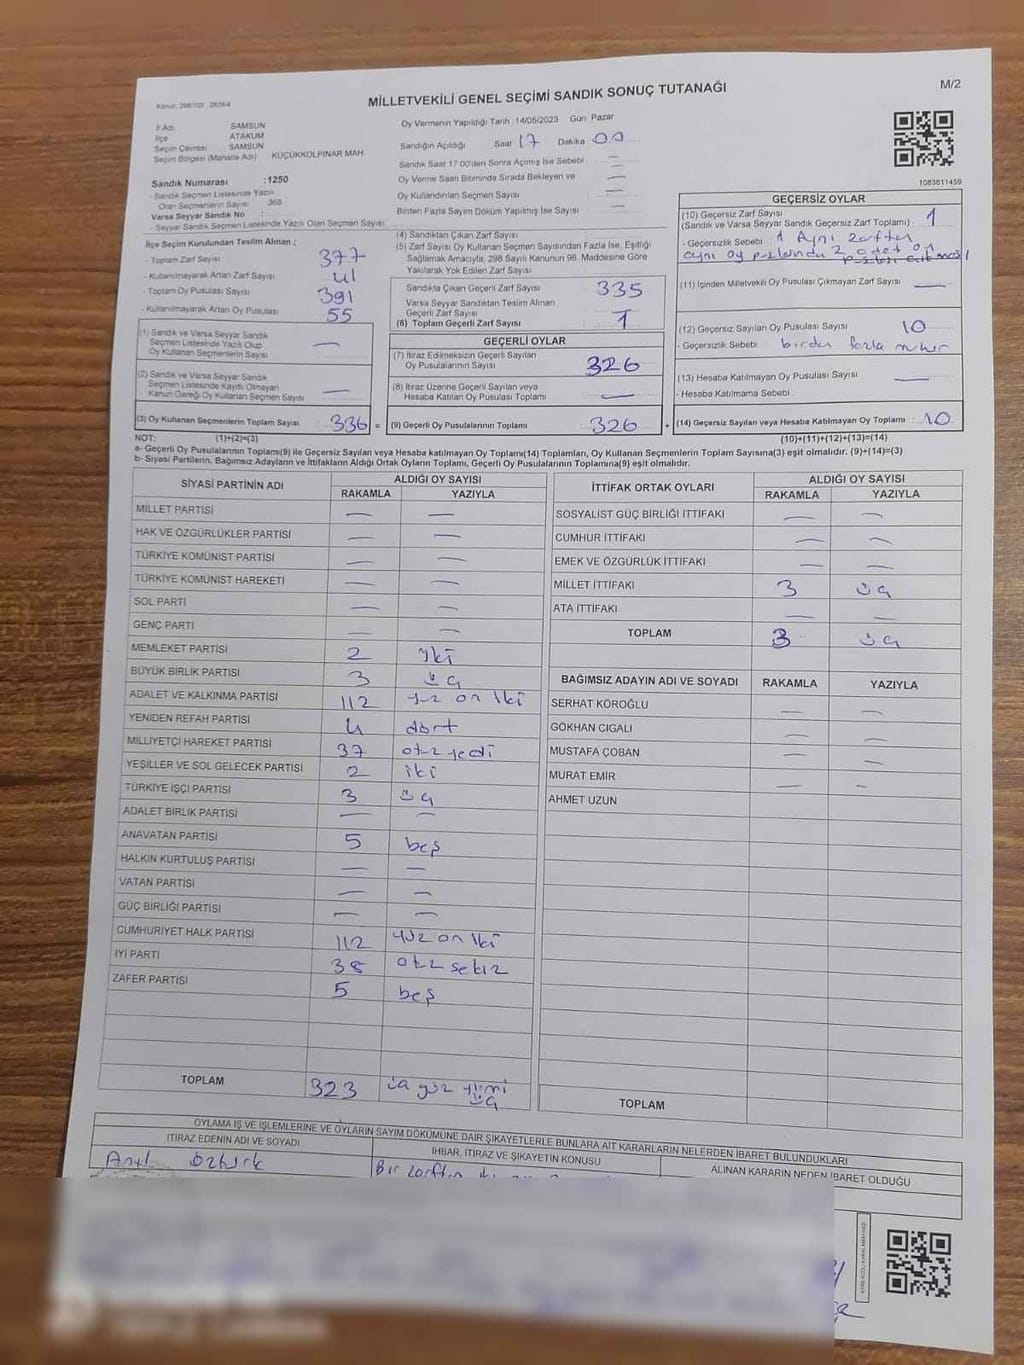 Kanun: 298/105 : 2839/4
MİLLETVEKİLİ GENEL SEÇİMİ SANDIK SONUÇ TUTANAĞI
M/2
İl Adı SAMSUN
İlçe ATAKUM
Seçim Çevresi SAMSUN
Seçim Bölgesi (Mahalle Adı) KÜÇÜKKOLPINAR MAH.
Sandık Numarası :1250
- Sandık Seçmen Listesinde Yazılı
Olan Seçmenlerin Sayısı 368
Varsa Seyyar Sandık No :
- Seyyar Sandık Seçmen Listesinde Yazılı Olan Seçmen Sayısı
Oy Vermenin Yapıldığı Tarih :14/05/2023 Gün: Pazar
Sandığın Açıldığı Saat 17 Dakika 00
Sandık Saat 17:00'den Sonra Açılmış İse Sebebi —
Oy Verme Saati Bitiminde Sırada Bekleyen ve —
Oy Kullandırılan Seçmen Sayısı —
Birden Fazla Sayım Döküm Yapılmış İse Sayısı —
1083811459
İlçe Seçim Kurulundan Teslim Alınan ;
- Toplam Zarf Sayısı 377
- Kullanılmayarak Artan Zarf Sayısı 41
- Toplam Oy Pusulası Sayısı 391
- Kullanılmayarak Artan Oy Pusulası 55
(1) Sandık ve Varsa Seyyar Sandık
Seçmen Listesinde Yazılı Olup
Oy Kullanan Seçmenlerin Sayısı —
(2) Sandık ve Varsa Seyyar Sandık
Seçmen Listesinde Kayıtlı Olmayan
Kanun Gereği Oy Kullanan Seçmen Sayısı —
(3) Oy Kullanan Seçmenlerin Toplam Sayısı 336 =
(4) Sandıktan Çıkan Zarf Sayısı
(5) Zarf Sayısı Oy Kullanan Seçmen Sayısından Fazla İse, Eşitliği
Sağlamak Amacıyla, 298 Sayılı Kanunun 98. Maddesine Göre
Yakılarak Yok Edilen Zarf Sayısı
Sandıkta Çıkan Geçerli Zarf Sayısı 335
Varsa Seyyar Sandıktan Teslim Alınan
Geçerli Zarf Sayısı
(6) Toplam Geçerli Zarf Sayısı 1
GEÇERLİ OYLAR
(7) İtiraz Edilmeksizin Geçerli Sayılan
Oy Pusulalarının Sayısı 326
(8) İtiraz Üzerine Geçerli Sayılan veya
Hesaba Katılan Oy Pusulası Toplamı —
(9) Geçerli Oy Pusulalarının Toplamı 326 +
GEÇERSİZ OYLAR
(10) Geçersiz Zarf Sayısı
(Sandık ve Varsa Seyyar Sandık Geçersiz Zarf Toplamı) : 1
- Geçersizlik Sebebi : 1 Aynı zarftan
aynı oy pslandu 2 adet oy
(11) İçinden Milletvekili Oy Pusulası Çıkmayan Zarf Sayısı —
(12) Geçersiz Sayılan Oy Pusulası Sayısı 10
- Geçersizlik Sebebi : birden fazla mühür
(13) Hesaba Katılmayan Oy Pusulası Sayısı —
- Hesaba Katılmama Sebebi :
(14) Geçersiz Sayılan veya Hesaba Katılmayan Oy Toplamı 10
NOT: (1)+(2)=(3) (10)+(11)+(12)+(13)=(14)
a- Geçerli Oy Pusulalarının Toplamı(9) ile Geçersiz Sayılan veya Hesaba katılmayan Oy Toplamı(14) Toplamları, Oy Kullanan Seçmenlerin Toplam Sayısına(3) eşit olmalıdır. (9)+(14)=(3)
b- Siyasi Partilerin, Bağımsız Adayların ve İttifakların Aldığı Ortak Oyların Toplamı, Geçerli Oy Pusulalarının Toplamına(9) eşit olmalıdır.
SİYASİ PARTİNİN ADI ALDIĞI OY SAYISI
RAKAMLA YAZIYLA
MİLLET PARTİSİ — —
HAK VE ÖZGÜRLÜKLER PARTİSİ — —
TÜRKİYE KOMÜNİST PARTİSİ — —
TÜRKİYE KOMÜNİST HAREKETİ — —
SOL PARTİ — —
GENÇ PARTİ — —
MEMLEKET PARTİSİ 2 iki
BÜYÜK BİRLİK PARTİSİ 3 üç
ADALET VE KALKINMA PARTİSİ 112 yüz on iki
YENİDEN REFAH PARTİSİ 4 dört
MİLLİYETÇİ HAREKET PARTİSİ 37 otuz yedi
YEŞİLLER VE SOL GELECEK PARTİSİ 2 iki
TÜRKİYE İŞÇİ PARTİSİ 3 üç
ADALET BİRLİK PARTİSİ — —
ANAVATAN PARTİSİ 5 beş
HALKIN KURTULUŞ PARTİSİ — —
VATAN PARTİSİ — —
GÜÇ BİRLİĞİ PARTİSİ — —
CUMHURİYET HALK PARTİSİ 112 yüz on iki
İYİ PARTİ 38 otuz sekiz
ZAFER PARTİSİ 5 beş
TOPLAM 323 üç yüz yirmi üç
İTTİFAK ORTAK OYLARI ALDIĞI OY SAYISI
RAKAMLA YAZIYLA
SOSYALİST GÜÇ BİRLİĞİ İTTİFAKI — —
CUMHUR İTTİFAKI — —
EMEK VE ÖZGÜRLÜK İTTİFAKI — —
MİLLET İTTİFAKI 3 üç
ATA İTTİFAKI — —
TOPLAM 3 üç
BAĞIMSIZ ADAYIN ADI VE SOYADI RAKAMLA YAZIYLA
SERHAT KÖROĞLU — —
GÖKHAN CIGALI — —
MUSTAFA ÇOBAN — —
MURAT EMİR — —
AHMET UZUN
TOPLAM
OYLAMA İŞ VE İŞLEMLERİNE VE OYLARIN SAYIM DÖKÜMÜNE DAİR ŞİKAYETLERLE BUNLARA AİT KARARLARIN NELERDEN İBARET BULUNDUKLARI
İTİRAZ EDENİN ADI VE SOYADI İHBAR, İTİRAZ VE ŞİKAYETİN KONUSU ALINAN KARARIN NEDEN İBARET OLDUĞU
Anıl Öztürk Bir zarftan iki